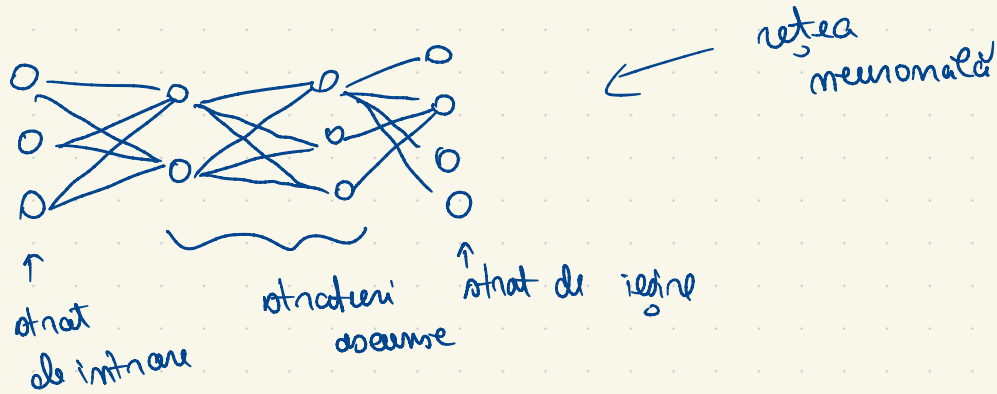 rețea
neuronală
strat
de intrare
straturi
ascunse
strat de ieșire